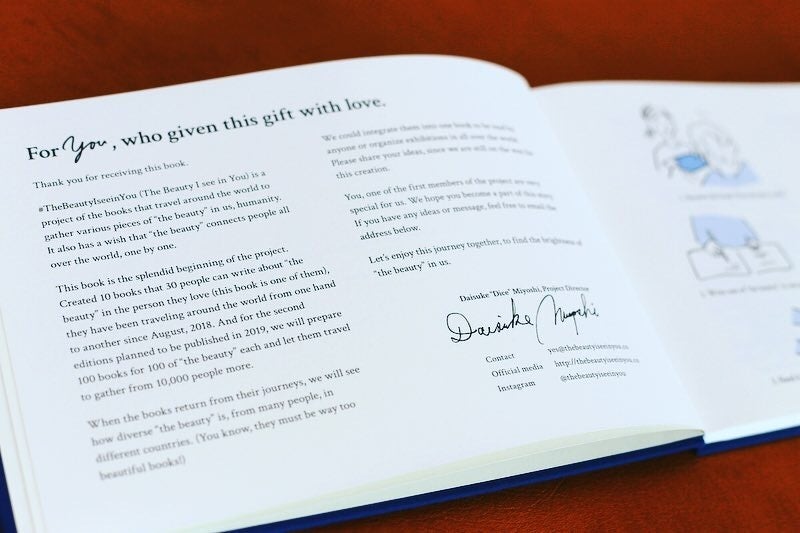 For You, who given this gift with love.
Thank you for receiving this book.
#TheBeautyIseeinYou (The Beauty I see in You) is a
project of the books that travel around the world to
gather various pieces of "the beauty" in us, humanity.
It also has a wish that "the beauty" connects people all
over the world, one by one.
This book is the splendid beginning of the project.
Created 10 books that 30 people can write about "the
beauty" in the person they love (this book is one of them),
they have been traveling around the world from one hand
to another since August, 2018. And for the second
editions planned to be published in 2019, we will prepare
100 books for 100 of "the beauty" each and let them travel
to gather from 10,000 people more.
When the books return from their journeys, we will see
how diverse "the beauty" is, from many people, in
different countries. (You know, they must be way too
beautiful books!)
We could integrate them into one book to be read by
anyone or organize exhibitions in all over the world.
Please share your ideas, since we are still on the way for
this creation.
You, one of the first members of the project are very
special for us. We hope you become a part of this story.
If you have any ideas or message, feel free to email the
address below.
Let's enjoy this journey together, to find the brightness of
"the beauty" in us.
Daisuke "Dice" Miyoshi, Project Director
Daisuke Miyoshi
Contact yes@thebeautyiseeinyou.co
Official media http://thebeautyiseeinyou.co
Instagram @thebeautyiseeinyou